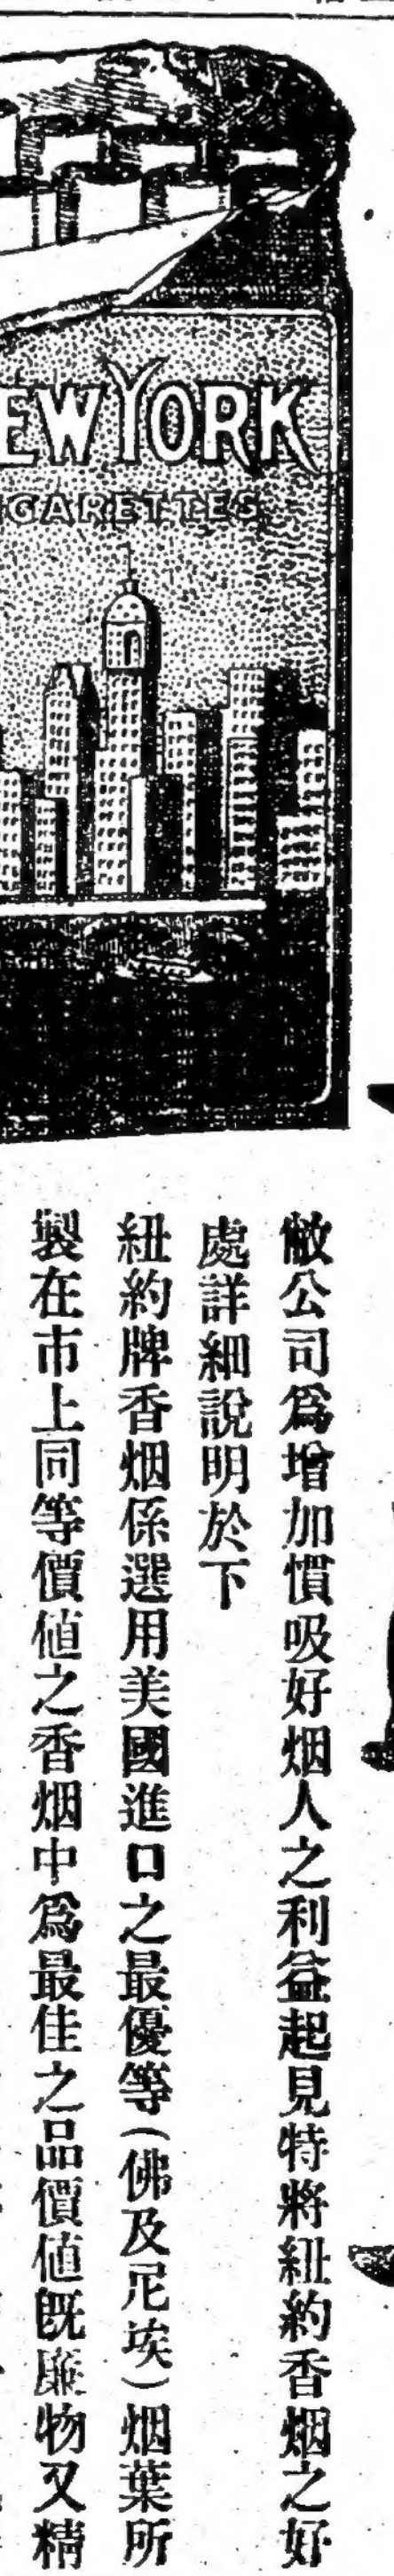 EW YORK
GARETTES
敝公司爲增加慣吸好烟人之利益起見特將紐約香烟之好
處詳細說明於下
紐約牌香烟係選用美國進口之最優等（佛及尼埃）烟葉所
製在市上同等價値之香烟中爲最佳之品價値旣廉物又精